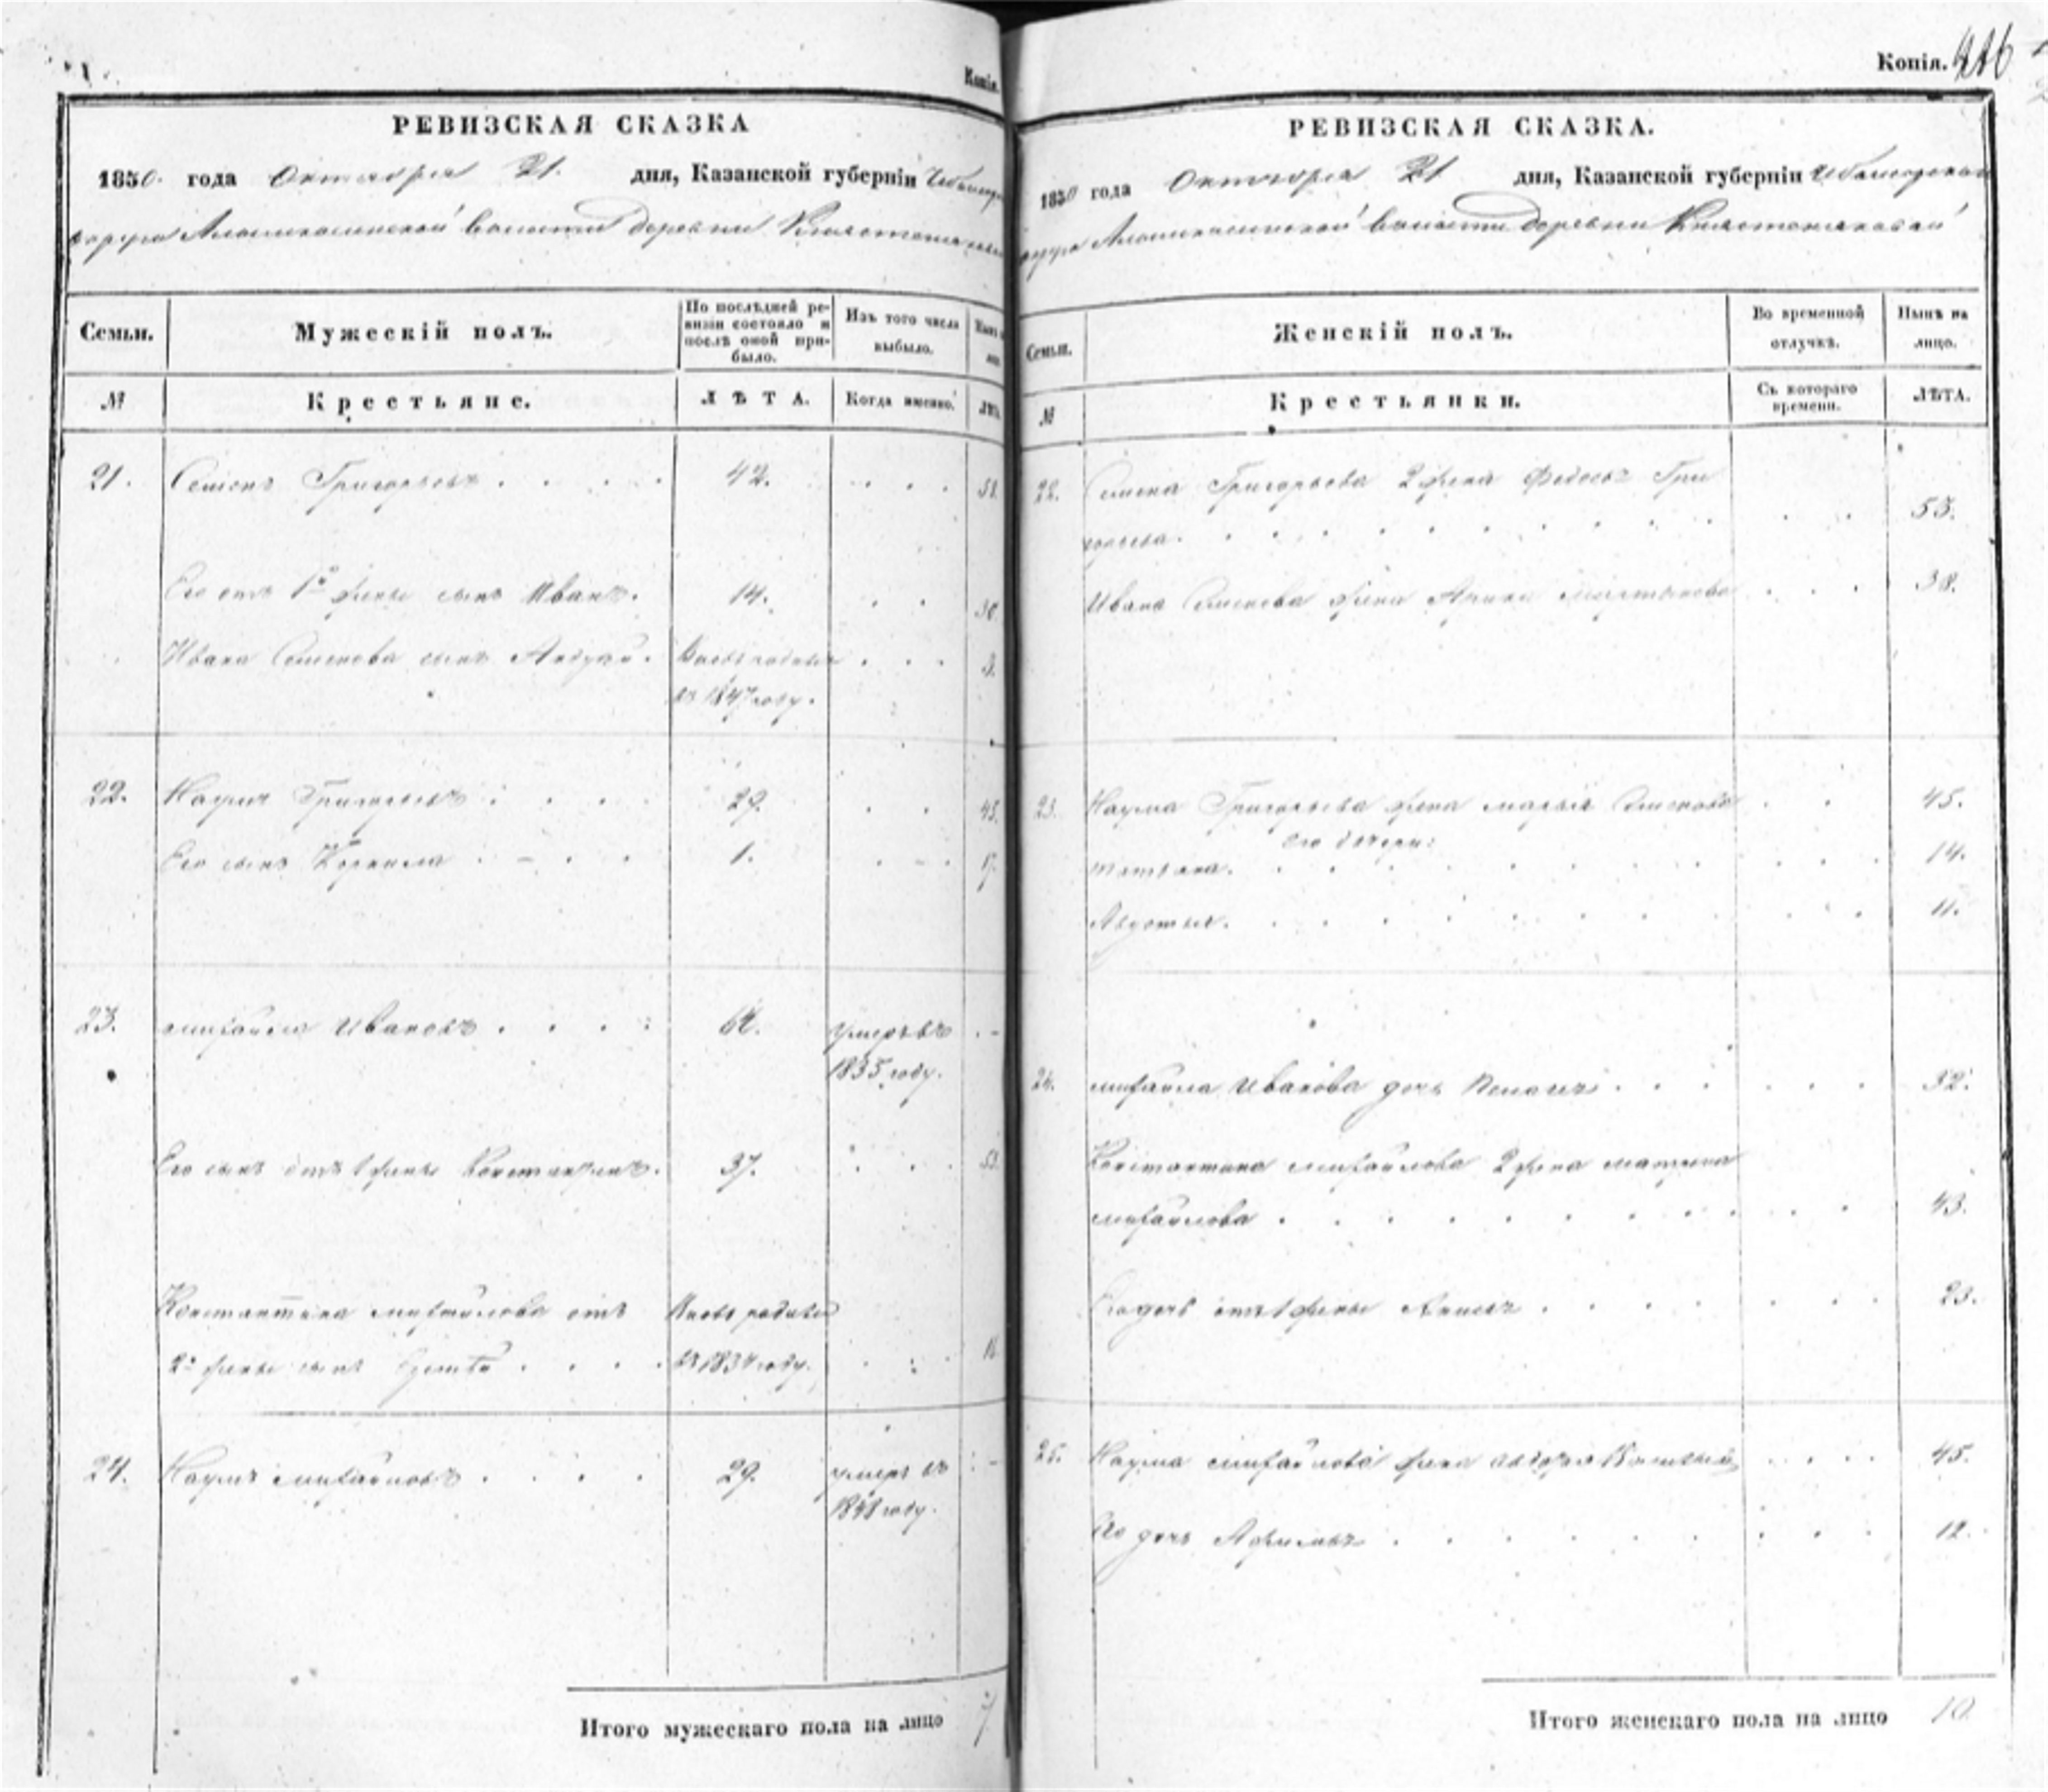 Копія.
РЕВИЗСКАЯ СКАЗКА
1850. года Октября 21. дня, Казанской губерніи
округа волости деревни
Семьи.
Мужескій полъ.
По послѣдней ре-
визіи состояло и
послѣ оной при-
было.
Изъ того числа
выбыло.
№
Крестьяне.
ЛѢТА.
Когда именно.
21. Семенъ Григорьевъ 42.
Его отъ 1й жены сынъ Иванъ. 14. 30.
Ивана Семенова сынъ Вновь рожден 3.
въ 1847 году.
22. Наумъ Григорьевъ 29. 45.
Его сынъ Корнила 1. 17.
23. Михайла Ивановъ 62. умеръ въ
1835 году.
Его сынъ отъ 1 жены Константинъ. 37. 53.
Константина Михайлова отъ Вновь рожден
2й жены сынъ въ 1834 году. 16
24. Наумъ Михайловъ 29. умеръ въ
1848 году.
Итого мужескаго пола на лицо 7
Копія. 
РЕВИЗСКАЯ СКАЗКА.
1850 года Октября 21 дня, Казанской губерніи
округа волости деревни
Семьи.
Женскій полъ.
Во временной
отлучкѣ.
Нынѣ на
лицо.
№
Крестьянки.
Съ котораго
времени.
ЛѢТА.
22. Семена Григорьева 2 жена Федосья Гри
горьева. 53.
Ивана Семенова жена Арина Мартынова 38.
23. Наума Григорьева жена Марья Семенова 45.
Его дочери:
Татьяна. 14.
Авдотья. 11.
24. Михайла Иванова дочь Пелагея 32.
Константина Михайлова 2 жена Матрена
Михайлова 43.
Его дочь отъ 1 жены Анисья 23.
25. Наума Михайлова жена 45.
Его дочь 12.
Итого женскаго пола на лицо 10